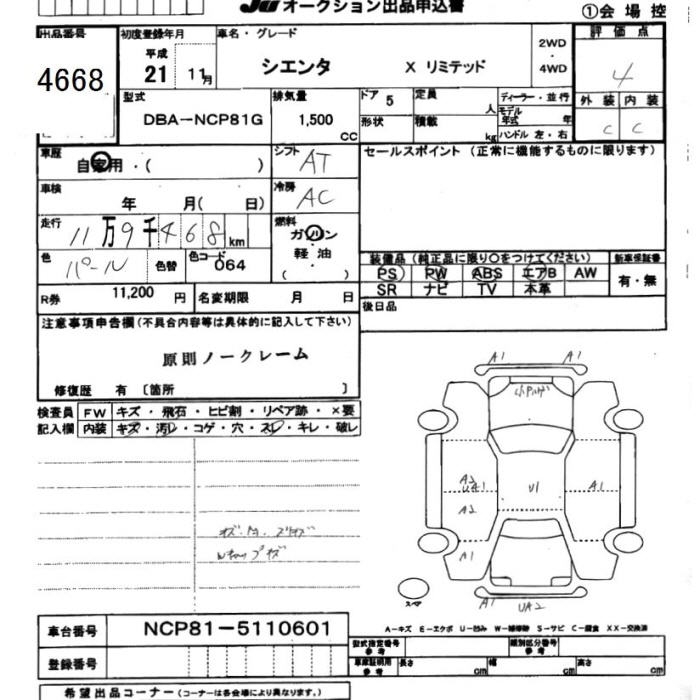 JU オークション出品申込書
①会場控
出品番号 4668
初度登録年月 平成 21 11月
車名・グレード シエンタ X リミテッド
2WD ・ 4WD
評価点 4
外装 内装
C C
型式 DBA-NCP81G
排気量 1,500 CC
ドア 5
形状
定員 人
積載 kg
ディーラー・並行
モデル年式 年
ハンドル 左・右
車歴 自家用・( )
シフト AT
セールスポイント(正常に機能するものに限ります)
車検 年 月( 日)
冷房 AC
走行 11万9千468km
燃料 ガソリン 軽油 ( )
色 パール 色替 色コード 064
装備品(純正品に限り○をつけてください)
新車保証書
PS PW ABS エアB AW
有・無
SR ナビ TV 本革
R券 11,200 円 名変期限 月 日
後日品
注意事項申告欄(不具合内容等は具体的に記入して下さい)
原則ノークレーム
修復歴 有〔箇所 〕
検査員 FW キズ・飛石・ヒビ割・リペア跡・×要
記入欄 内装 キズ・汚レ・コゲ・穴・スレ・キレ・破レ
A1 A1
A2
UA1 U1 A1
A2
A1
A1 UA2
スペア
A-キズ E-エクボ U-凹み W-補修跡 S-サビ C-腐食 XX-交換済
車台番号 NCP81-5110601
型式指定番号 参考 類別区分番号 参考
登録番号
車庫証明用 参考 長さ cm 幅 cm 高さ cm
希望出品コーナー(コーナーは各会場により異なります。)